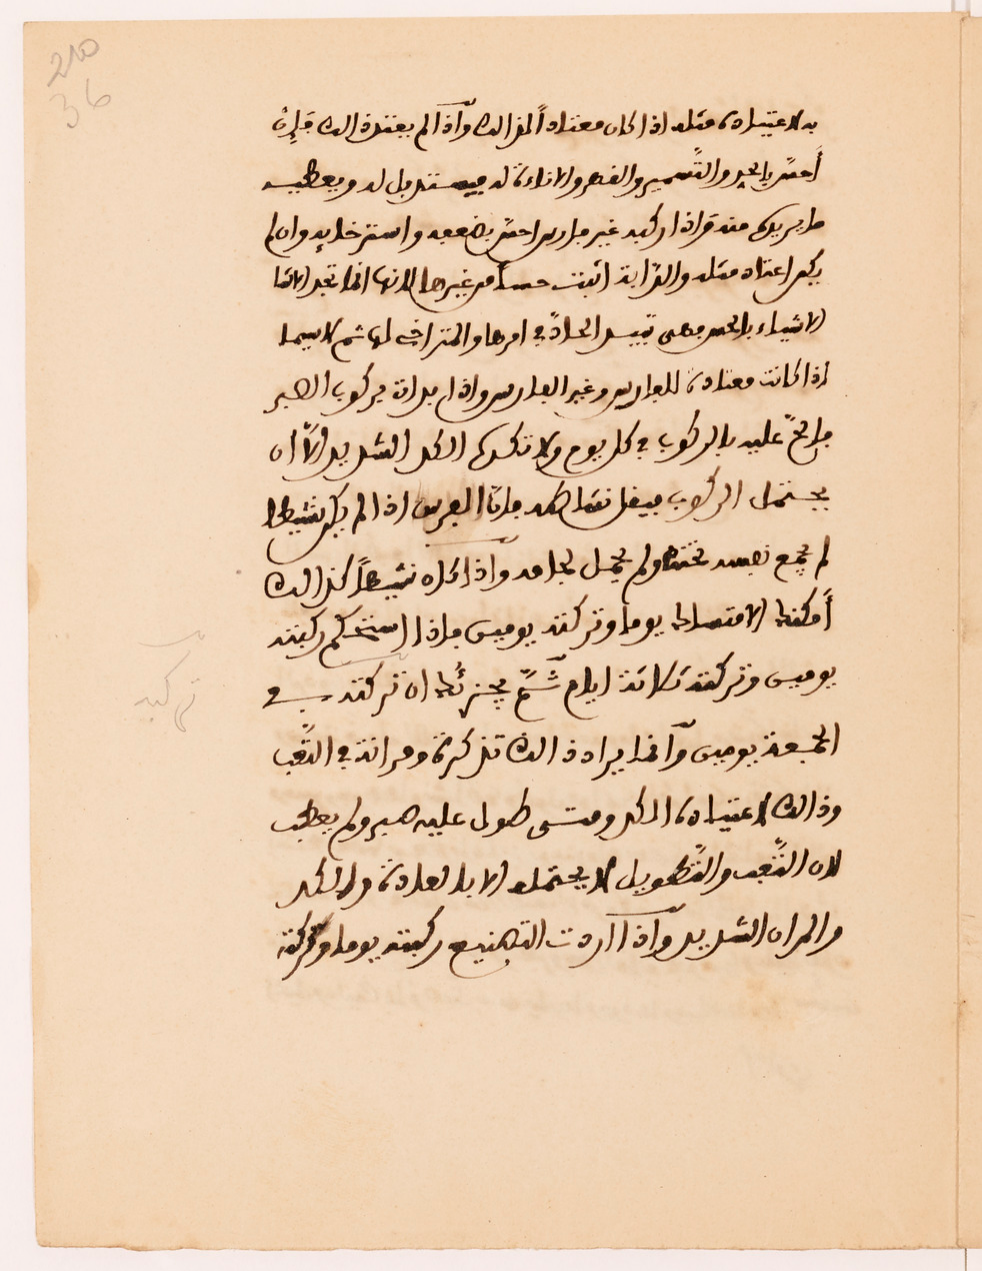 به لاعتياده مثله اذا كان معتادًا لذالك واذا لم يعتد ذالك فإن
أحسّ بالجد والتّشمير والقهر والاناءة له فيستذل له ويعطيه
ما يريده منه واذا ركبه غير فارس احسّ بضعفه واسترخايه وان لم
يكن اعتاد مثله والدّابة اثبت حسًا من غيرها لانها انما تجد الاشا
الاشياء بالحس فهى تميس الحادّ في امرها والمتراخي لها ثم لا سيما
اذا كانت معتادة للفارس وغير الفارس واذا بدات بركوب المهر
فالحّ عليه بالركوب في كل يوم ولا تكده الكد الشديد الّا ان
يحتمل الركوب فيقل نشاطه فانّ الفرس اذا لم يكن نشيطا
لم يجمع نفسه تحته ولم يحمل لجامه واذا كان نشيطاً كذالك
أمكنه الانبساط يوما وتركته يومين فاذا استحكم ركبته
يومين وتركته ثلاثة ايام ثمّ يجزئه ان تركته في
الجمعة يومين وانما يراد ذالك تذكرة ومرانة في التّعب
وذالك لاعتياده الكد ومتى طول عليه صبر ولم يعطب
لان التّعب والتّطويل لا يحتمله الا بالعادة والكد
والمران الشديد واذا اردت التصنيع ركبته يوما وتركته
تركبه
36